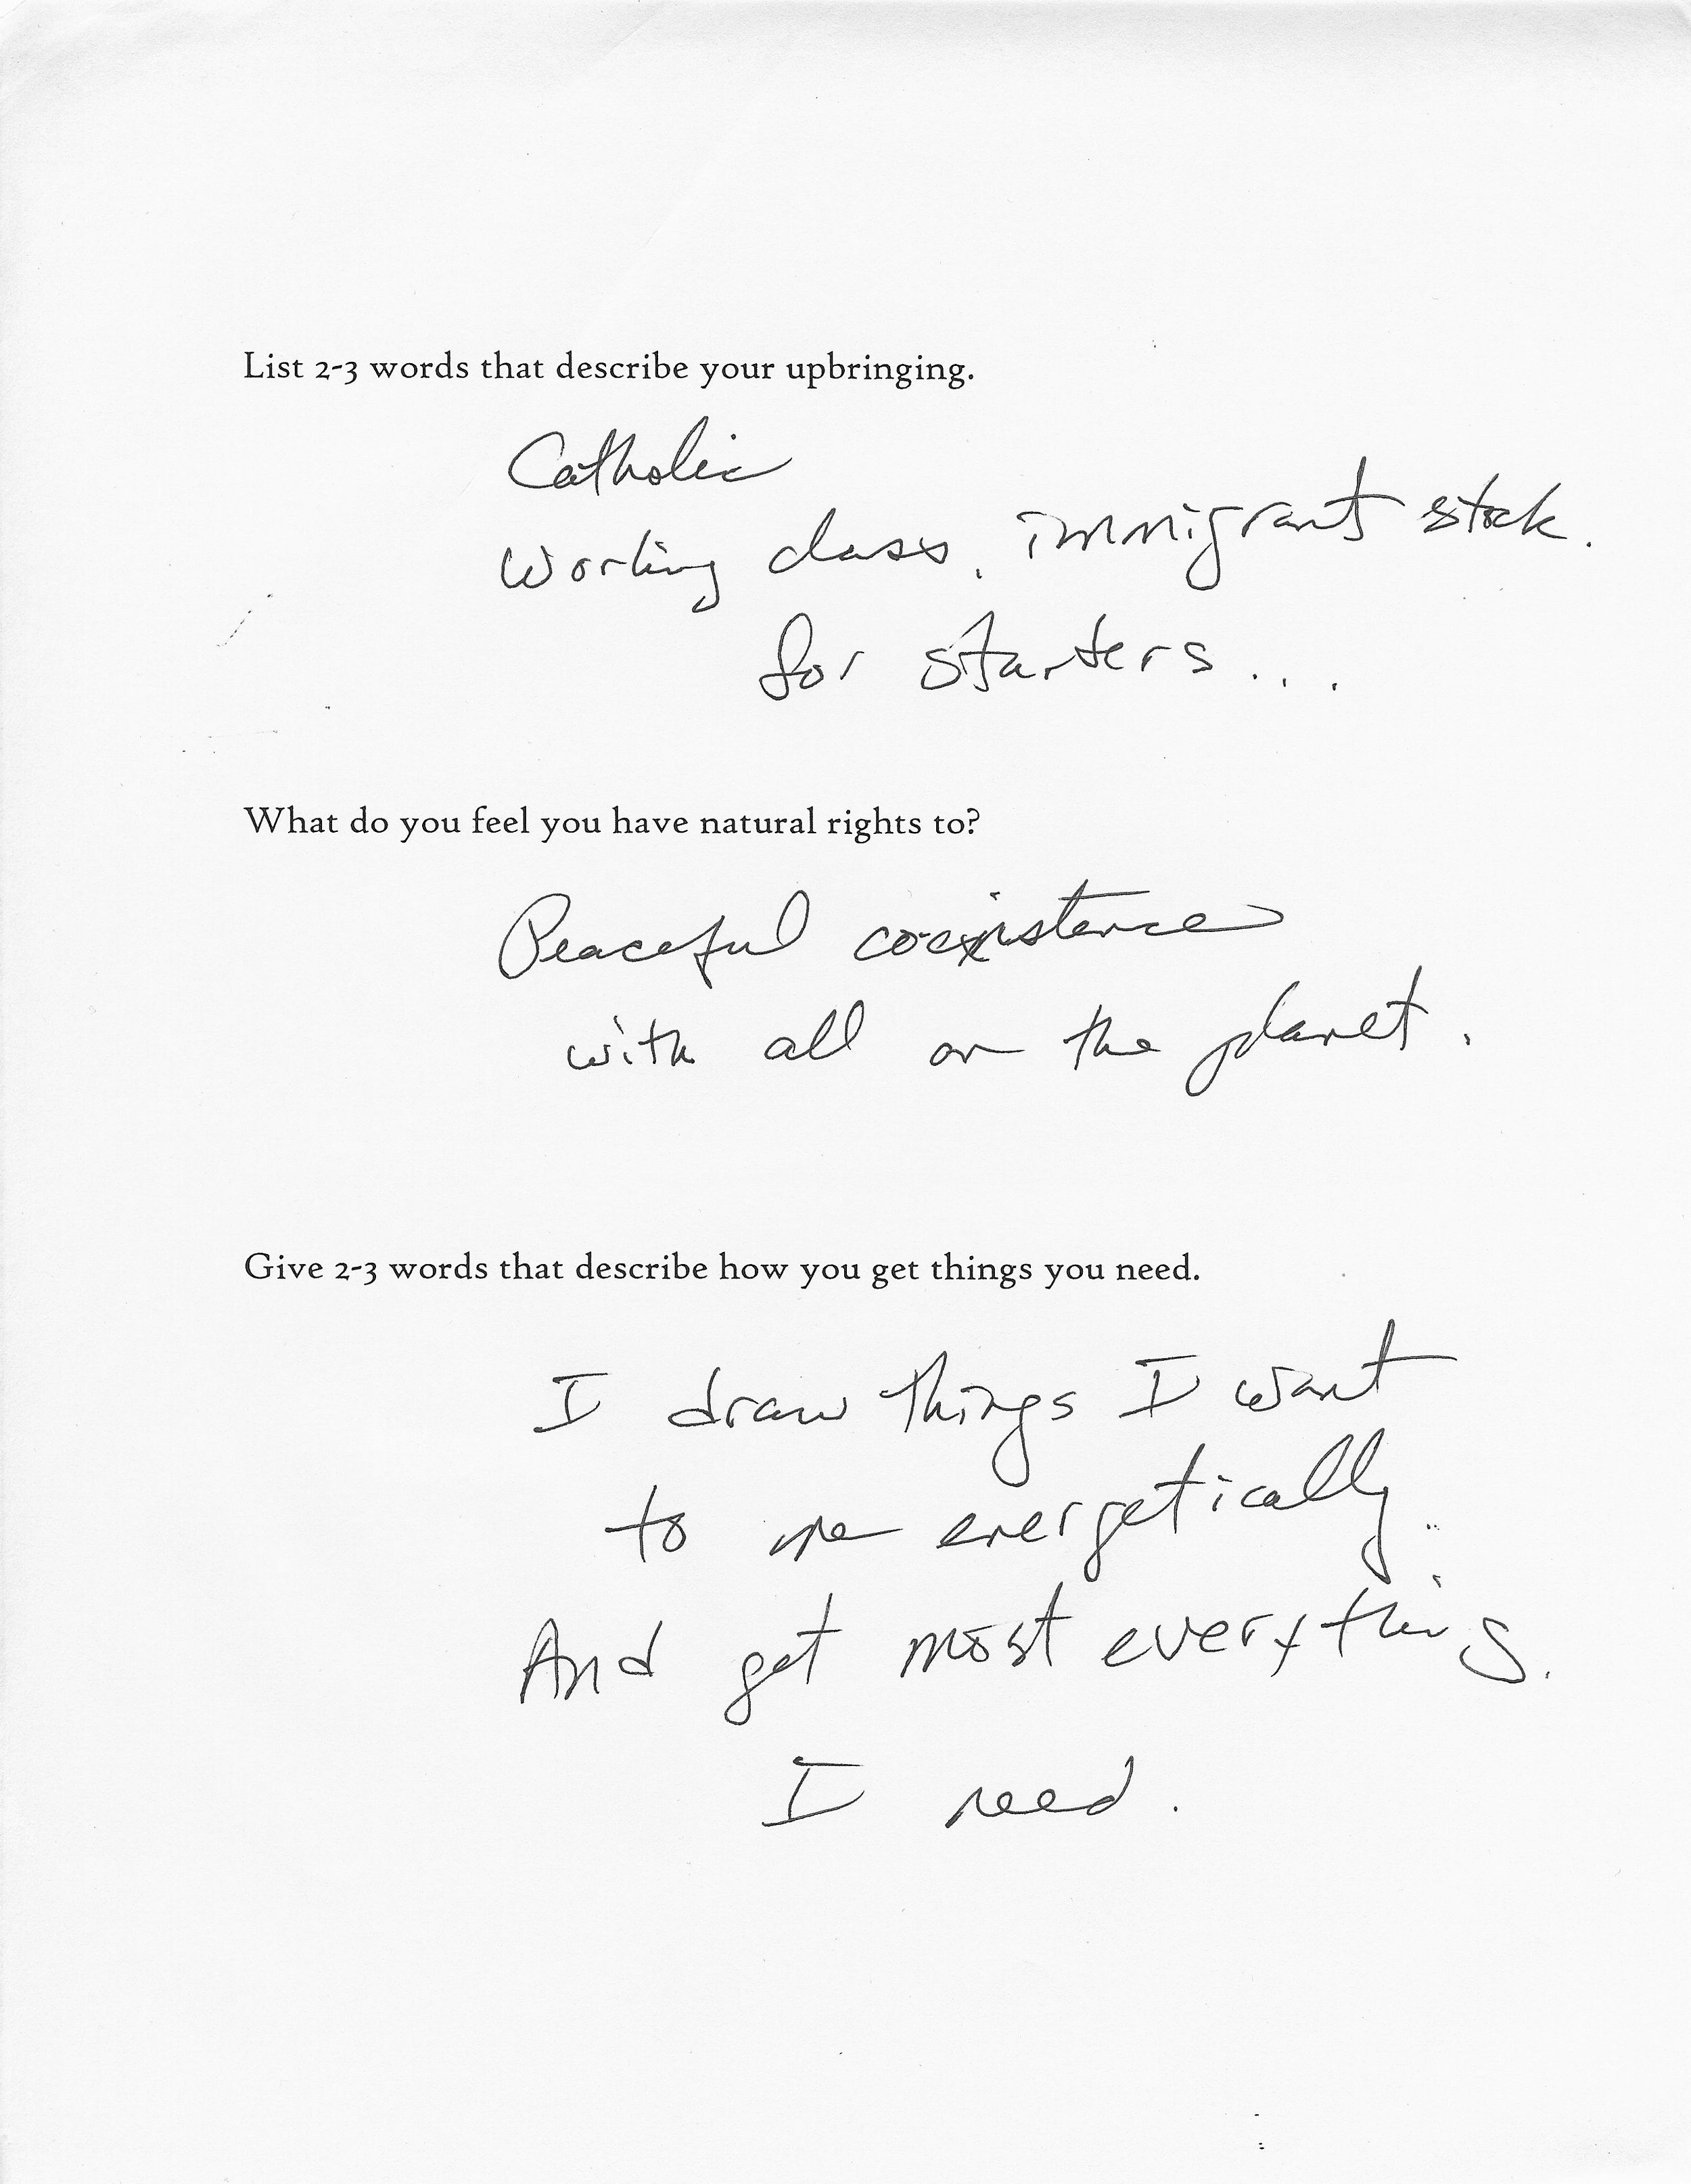 List 2-3 words that describe your upbringing.
Catholic
Working class, immigrant stock.
for starters...
What do you feel you have natural rights to?
Peaceful coexistence
with all on the planet.
Give 2-3 words that describe how you get things you need.
I draw things I want
to me energetically..
And get most everything.
I need.